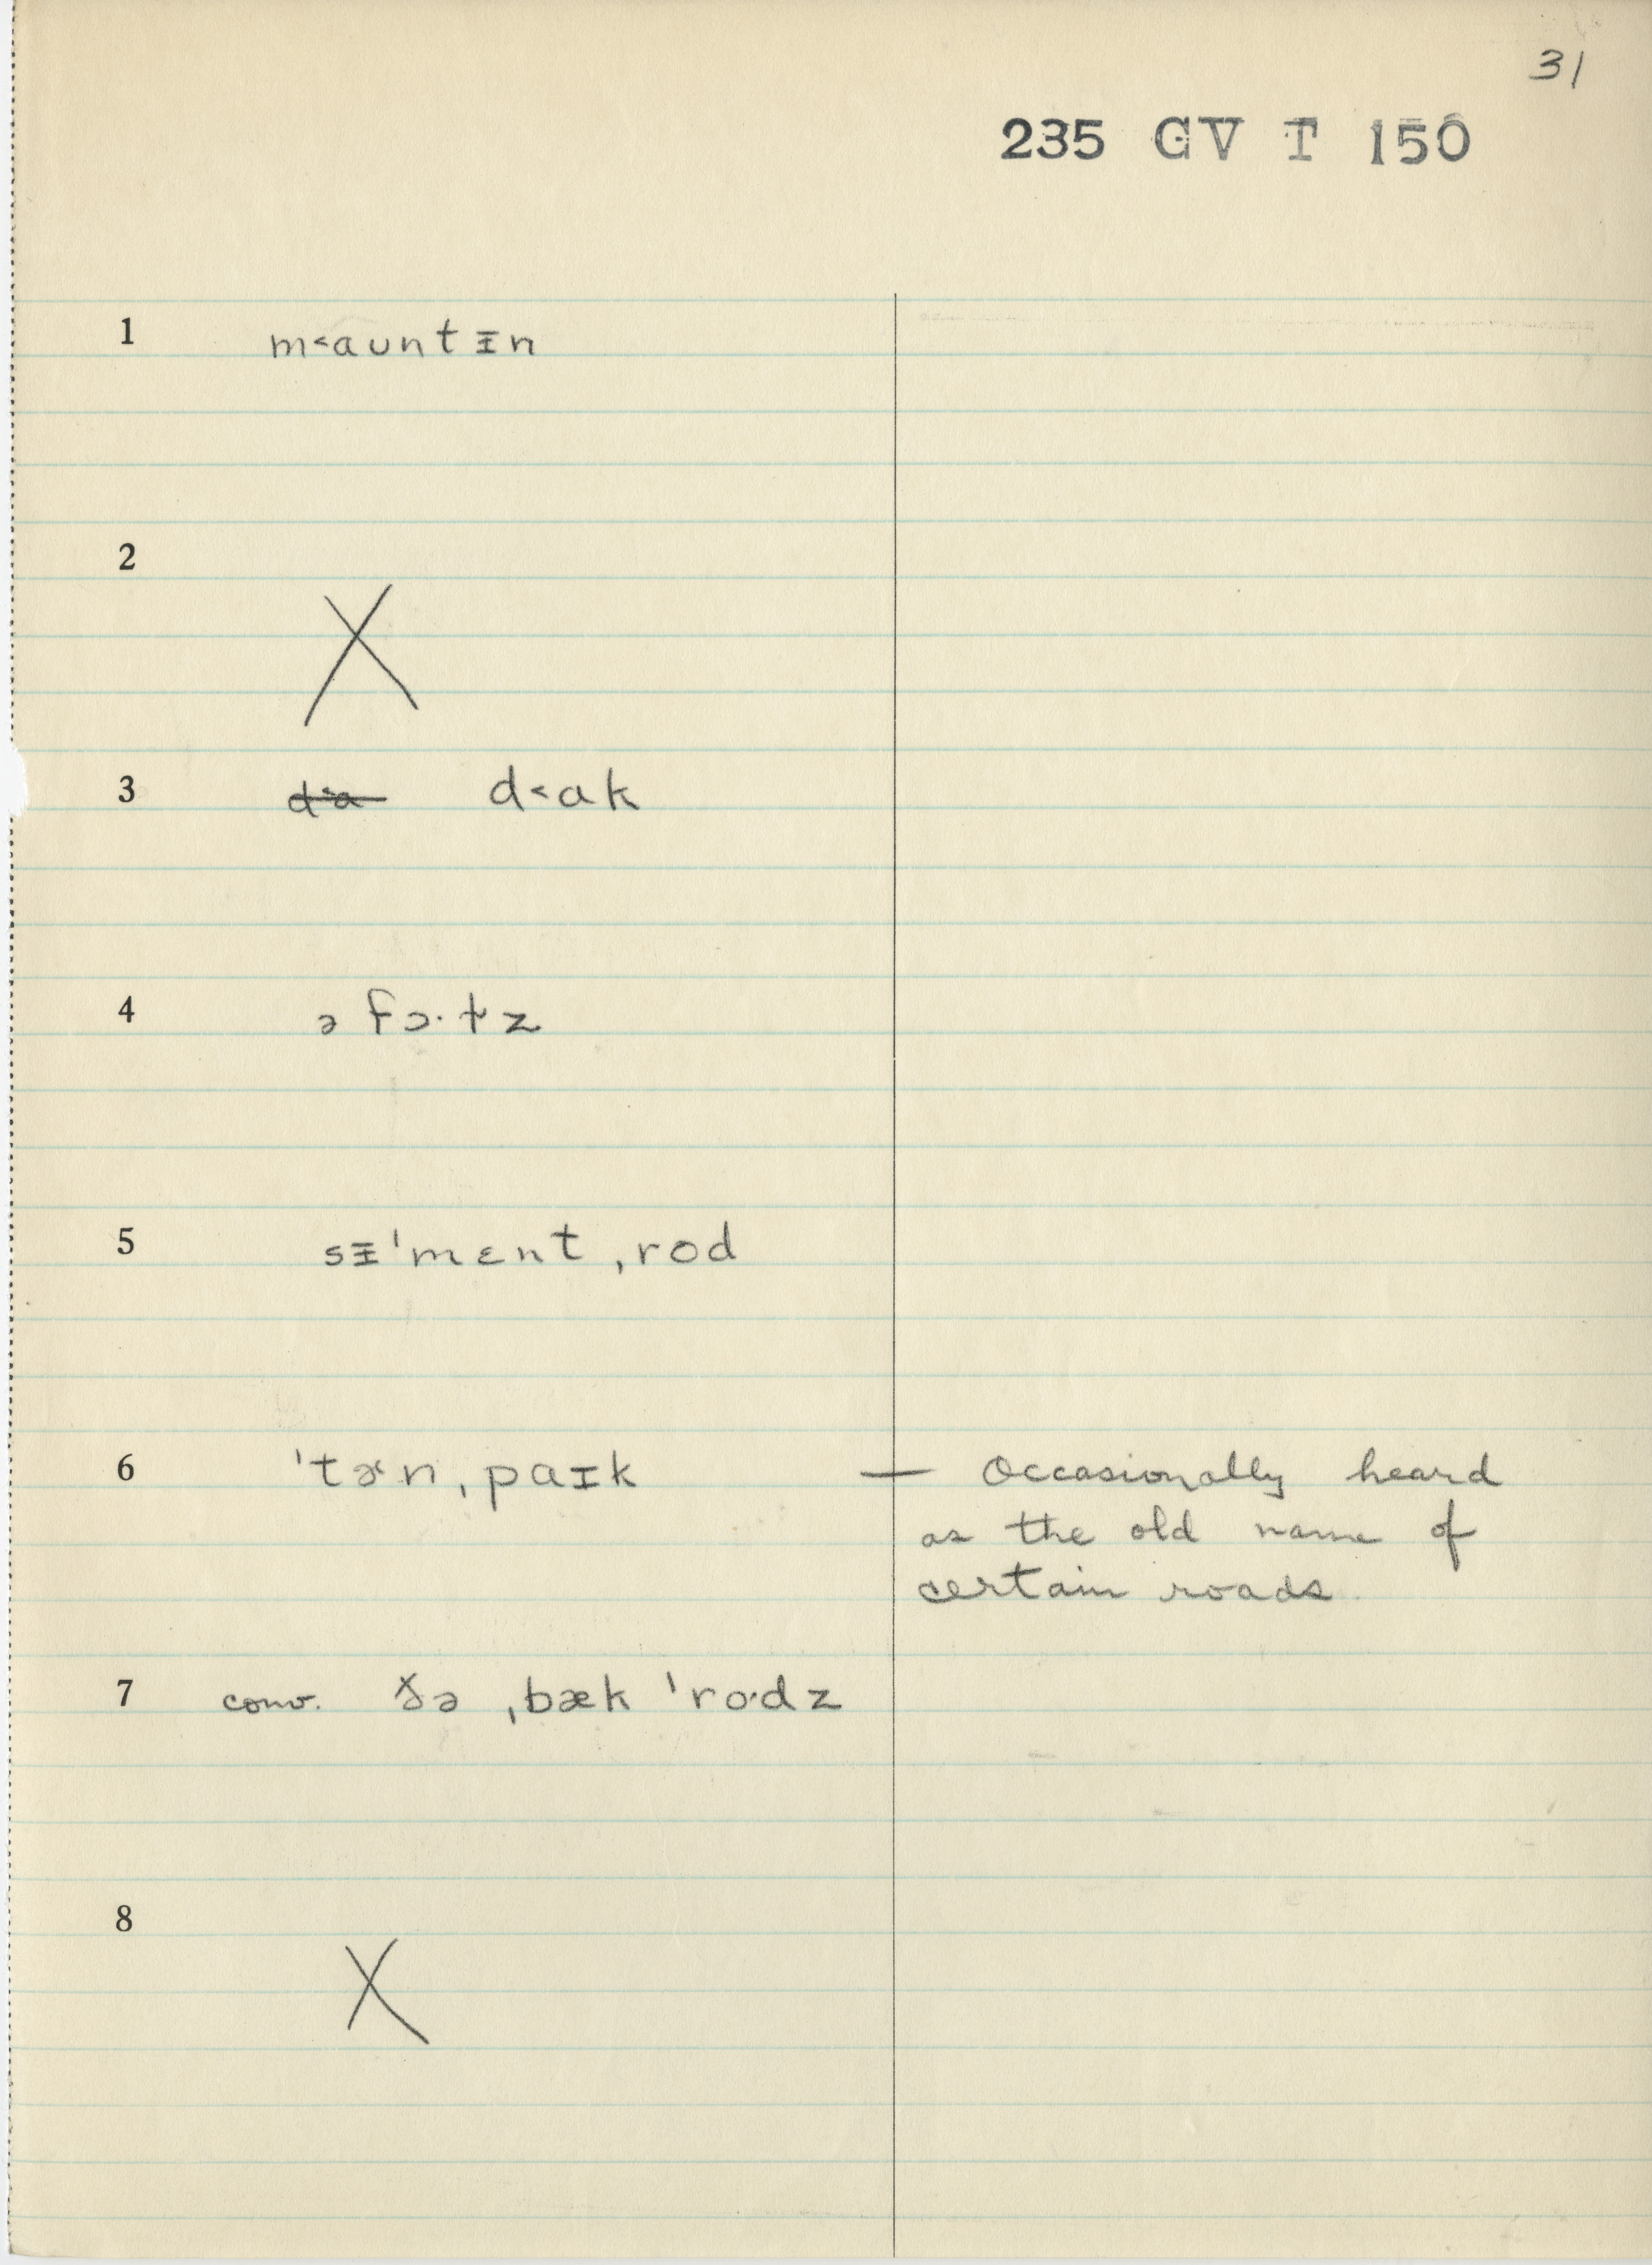 31
235 GV T 150
1 m˂aʊntᵻn
2 X
3 d˂a d˂ak
4 ə fɔ·t̬z
5 sᵻˈmɛnt ˌrod
6 ˈtɚn ˌpaɪk — Occasionally heard
as the old name of
certain roads.
7 conv. ðə ˌbæk ˈro·dz
8 X